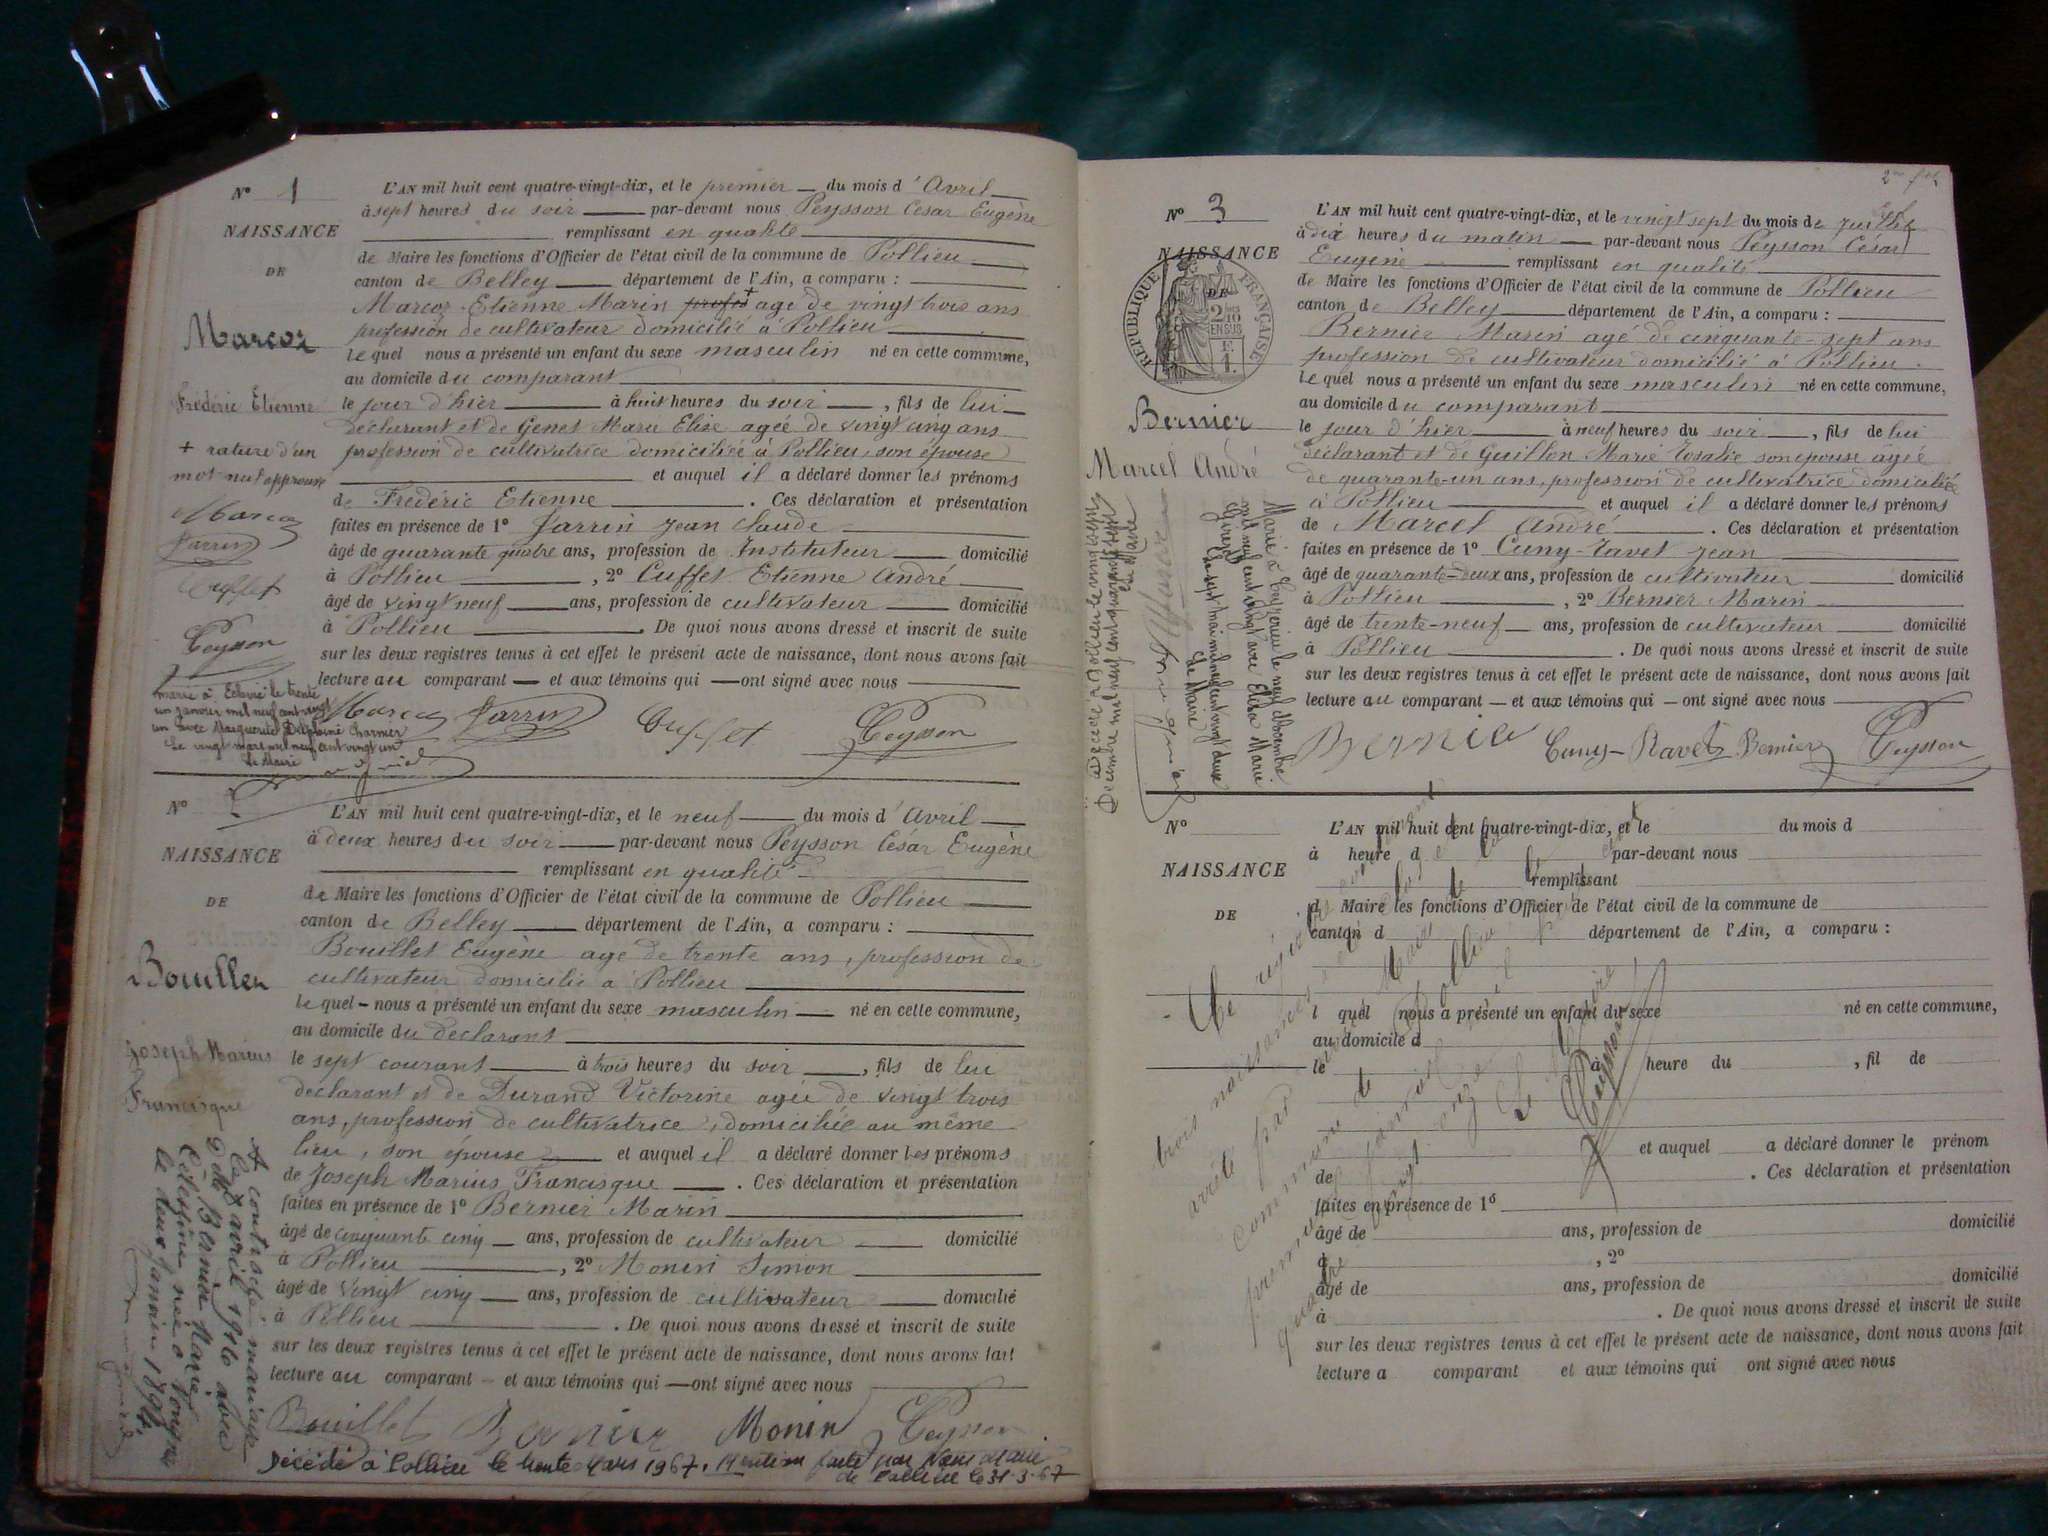 N° 1
NAISSANCE
DE
Marcoz
Frédéric Etienne
+ rature d'un
mot nul approuvé
Marcoz
Jarrin
Cuffet
Peysson
marié à le trente
un janvier mil neuf cent vingt
un avec Marguerite Delphine Charnier
Le vingt mars mil neuf cent vingt un
Le Maire
L'AN mil huit cent quatre-vingt-dix, et le premier du mois d'Avril
à sept heures du soir par-devant nous Peysson César Eugène
remplissant en qualité
de Maire les fonctions d'Officier de l'état civil de la commune de Pollieu
canton de Belley département de l'Ain, a comparu :
Marcoz Etienne Marin profes + agé de vingt trois ans
profession de cultivateur domicilié à Pollieu
lequel nous a présenté un enfant du sexe masculin né en cette commune,
au domicile du comparant
le jour d'hier à huit heures du soir, fils de lui
déclarant et de Genet Marie Elise agée de vingt cinq ans
profession de cultivatrice domiciliée à Pollieu, son épouse
et auquel il a déclaré donner les prénoms
de Frédéric Etienne. Ces déclaration et présentation
faites en présence de 1° Jarrin Jean Claude
âgé de quarante quatre ans, profession de Instituteur domicilié
à Pollieu, 2° Cuffet Etienne André
âgé de vingt neuf ans, profession de cultivateur domicilié
à Pollieu. De quoi nous avons dressé et inscrit de suite
sur les deux registres tenus à cet effet le présent acte de naissance, dont nous avons fait
lecture au comparant et aux témoins qui ont signé avec nous
Marcoz Jarrin Cuffet Peysson
N° 2
NAISSANCE
DE
Bouillet
Joseph Marius
Francisque
A contracté mariage
le avril 1916 avec
Dlle Bernier Marie
Célestine née à Vongnes
le deux janvier 1894.
L'AN mil huit cent quatre-vingt-dix, et le neuf du mois d'Avril
à deux heures du soir par-devant nous Peysson César Eugène
remplissant en qualité
de Maire les fonctions d'Officier de l'état civil de la commune de Pollieu
canton de Belley département de l'Ain, a comparu :
Bouillet Eugène agé de trente ans, profession de
cultivateur domicilié à Pollieu
lequel nous a présenté un enfant du sexe masculin né en cette commune,
au domicile du déclarant
le sept courant à trois heures du soir, fils de lui
déclarant et de Durand Victorine agée de vingt trois
ans, profession de cultivatrice, domiciliée au même
lieu, son épouse et auquel il a déclaré donner les prénoms
de Joseph Marius Francisque. Ces déclaration et présentation
faites en présence de 1° Bernier Marin
âgé de cinquante cinq ans, profession de cultivateur domicilié
à Pollieu, 2° Monin Simon
âgé de vingt cinq ans, profession de cultivateur domicilié
à Pollieu. De quoi nous avons dressé et inscrit de suite
sur les deux registres tenus à cet effet le présent acte de naissance, dont nous avons fait
lecture au comparant et aux témoins qui ont signé avec nous
Bouillet Bernier Monin Peysson
Décédé à Pollieu le trente Mars 1967. Mention faite par Nous Maire
de Pollieu le 31-3-67
N° 3
NAISSANCE
DE
RÉPUBLIQUE FRANÇAISE
Bernier
Marcel André
Marié à Ceyzérieu le neuf Novembre
mil neuf cent vingt avec Elisa Marie
Le sept mai mil neuf cent vingt deux
Le Maire
Décédé à Pollieu le vingt cinq
Décembre mil neuf cent
Le Maire
L'AN mil huit cent quatre-vingt-dix, et le vingt sept du mois de Juillet
à dix heures du matin par-devant nous Peysson César
Eugène remplissant en qualité
de Maire les fonctions d'Officier de l'état civil de la commune de Pollieu
canton de Belley département de l'Ain, a comparu :
Bernier Marin agé de cinquante-sept ans
profession de cultivateur domicilié à Pollieu.
lequel nous a présenté un enfant du sexe masculin né en cette commune,
au domicile du comparant
le jour d'hier à neuf heures du soir, fils de lui
déclarant et de Guillon Marie Rosalie son épouse agée
de quarante-un ans, profession de cultivatrice domiciliée
à Pollieu et auquel il a déclaré donner les prénoms
de Marcel André. Ces déclaration et présentation
faites en présence de 1° Cuny-Ravet Jean
âgé de quarante-deux ans, profession de cultivateur domicilié
à Pollieu, 2° Bernier Marin
âgé de trente-neuf ans, profession de cultivateur domicilié
à Pollieu. De quoi nous avons dressé et inscrit de suite
sur les deux registres tenus à cet effet le présent acte de naissance, dont nous avons fait
lecture au comparant et aux témoins qui ont signé avec nous
Bernier Cuny-Ravet Bernier Peysson
N°
NAISSANCE
DE
L'AN mil huit cent quatre-vingt-dix, et le du mois d
à heure d par-devant nous
remplissant
d Maire les fonctions d'Officier de l'état civil de la commune de
canton d département de l'Ain, a comparu :
l quel nous a présenté un enfant du sexe né en cette commune,
au domicile d
le à heure du , fil de
et auquel a déclaré donner le prénom
de . Ces déclaration et présentation
faites en présence de 1°
âgé de ans, profession de domicilié
à , 2°
âgé de ans, profession de domicilié
à . De quoi nous avons dressé et inscrit de suite
sur les deux registres tenus à cet effet le présent acte de naissance, dont nous avons fait
lecture a comparant et aux témoins qui ont signé avec nous
Le registre
trois naissances
arrêté par Maire de
commune de Pollieu
premier janvier
quatre vingt onze
Le Maire
Peysson